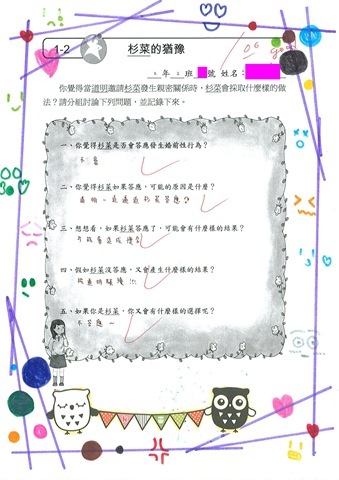 1-2 杉菜的猶豫
年 班 號 姓名：
good
你覺得當道明邀請杉菜發生親密關係時，杉菜會採取什麼樣的做
法？請分組討論下列問題，並記錄下來。
一、你覺得杉菜是否會答應發生婚前性行為？
不會
二、你覺得杉菜如果答應，可能的原因是什麼？
道明一直逼迫杉菜答應
三、想想看，如果杉菜答應了，可能會有什麼樣的結果？
四、假如杉菜沒答應，又會產生什麼樣的結果？
五、如果你是杉菜，你又會有什麼樣的選擇呢？
不答應~